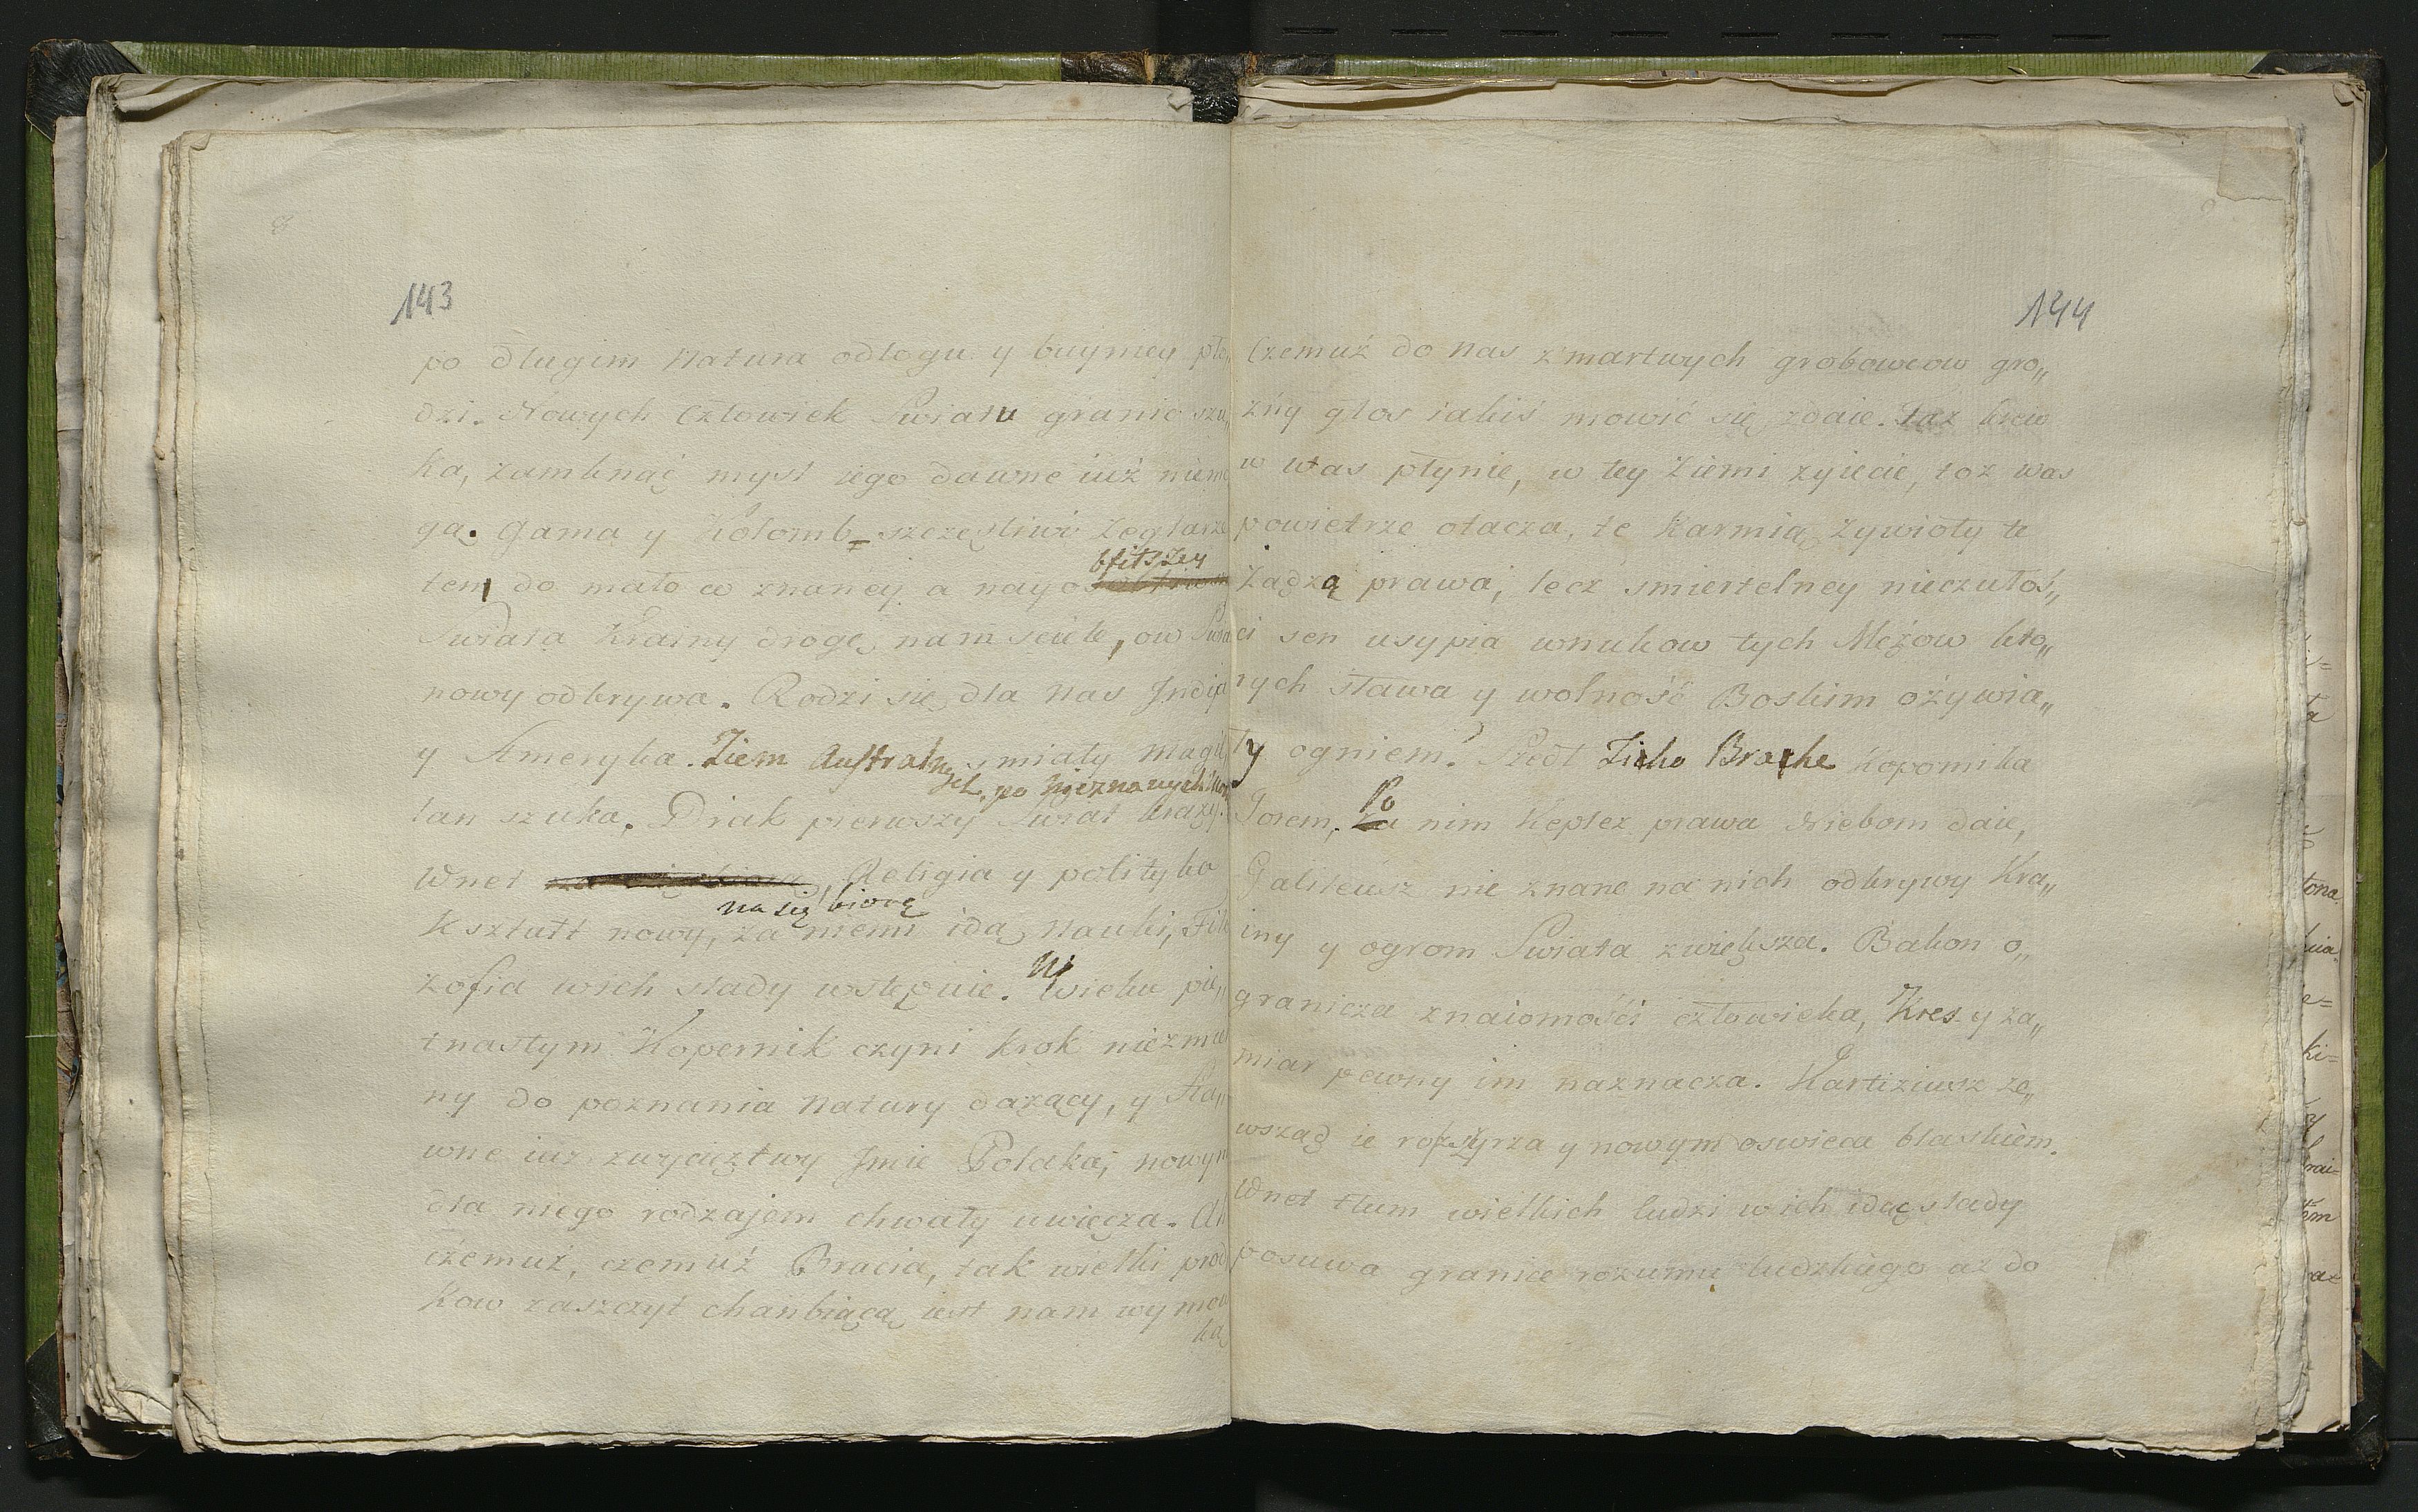 143
po długim natura odłogu y buyniey pło„
dzi. Nowych Człowiek Swiatu granic szu„
ka, zamknąć mysl iego dawne iuż niemo
ga. Gama y Kolomb szczęsliwi Zeglarze
bfitszey
tem do mało co znaney a nayo
Swiata Krainy drogę nam sciele, ow Swia
nowy odkrywa. Rodzi się dla nas Jndia
y Ameryka. Ziem Australnych, smiały Magel
po nieznanych mor
lan szuka. Drak pierwszy Swiat krąży.
Wnet Religia y polityka
na się biorą
Kształt nowy, za niemi idą nauki, Filo
zofia w ich slady wstępuie. W Wieku pię„
tnastym Kopernik czyni krok niezmier
ny do poznania Natury dązący, y Sła„
wne iuz zwycięztwy Jmie Polaka, nowym
dla niego rodzajem chwały uwięcza. Ah
czemuż, czemuż Bracia, tak wielki przod
kow zaszczyt chanbiącą iest nam wymow
ką
144
Czemuż do nas z martwych grobowcow gro„
źny głos iakiś mowić się zdaie. Taz krew
w was płynie, w tey Ziemi zyiecie, toz was
powietrze otacza, te karmią zywioły te
żądzą prawa, lecz smiertelney nieczułoś„
ci sen usypia wnukow tych Mężow kto„
rych sława y wolność Boskim ożywia„
ły ogniem? Szedł Ticho Brache Kopernika
Torem, Po
za nim Kepler prawa Niebom daie,
Galileusz nie znane na nich odkrywy Kra„
iny y ogrom Swiata zwiększa. Bakon o„
granicza znaiomośći człowieka, Kres y za„
miar pewny im naznacza. Kartiziusz ze„
wsząd ie rozszyrza y nowym oswieca blaskiem.
Wnet tłum wielkich ludzi w ich idąc slady
posuwa granice rozumu ludzkiego aż do